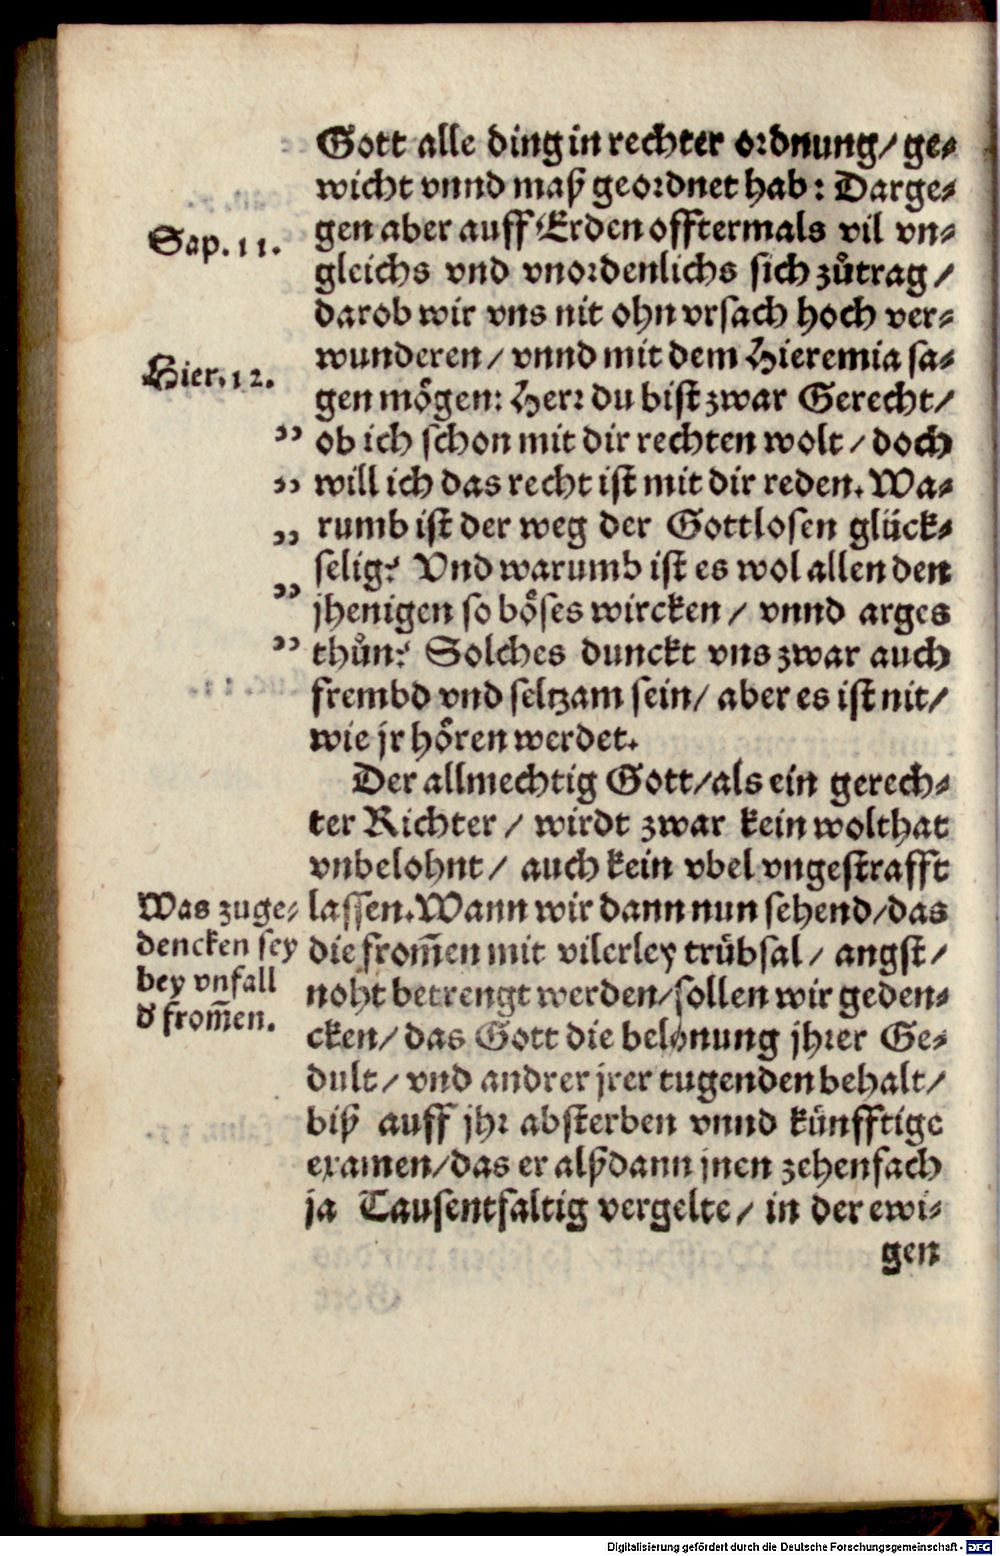 Gott alle ding in rechter ordnung/ ge⸗
wicht vnnd maß geordnet hab: Darge⸗
gen aber auff Erden offtermals vil vn⸗
Sap. 11.
gleichs vnd vnordenlichs sich zůtrag/
darob wir vns nit ohn vrsach hoch ver⸗
wunderen/ vnnd mit dem Hieremia sa⸗
Hier. 12.
gen mögen: Herr du bist zwar Gerecht/
ob ich schon mit dir rechten wolt/ doch
will ich das recht ist mit dir reden. Wa⸗
rumb ist der weg der Gottlosen glück⸗
selig? Vnd warumb ist es wol allen den
jhenigen so böses wircken/ vnnd arges
thůn? Solches dunckt vns zwar auch
frembd vnd seltzam sein/ aber es ist nit/
wie jr hören werdet.
Der allmechtig Gott/ als ein gerech⸗
ter Richter/ wirdt zwar kein wolthat
vnbelohnt/ auch kein vbel vngestrafft
lassen. Wann wir dann nun sehend/ das
die from̃en mit vilerley trübsal/ angst/
noht betrengt werden/ sollen wir geden⸗
cken/ das Gott die belonung jhrer Ge⸗
dult/ vnd andrer jrer tugenden behalt/
biß auff jhr absterben vnnd künfftige
examen/ das er alßdann jnen zehenfach
ja Tausentfaltig vergelte/ in der ewi⸗
gen
Was zuge⸗
dencken sey
bey vnfall
d' from̃en.
Digitalisierung gefördert durch die Deutsche Forschungsgemeinschaft - DFG